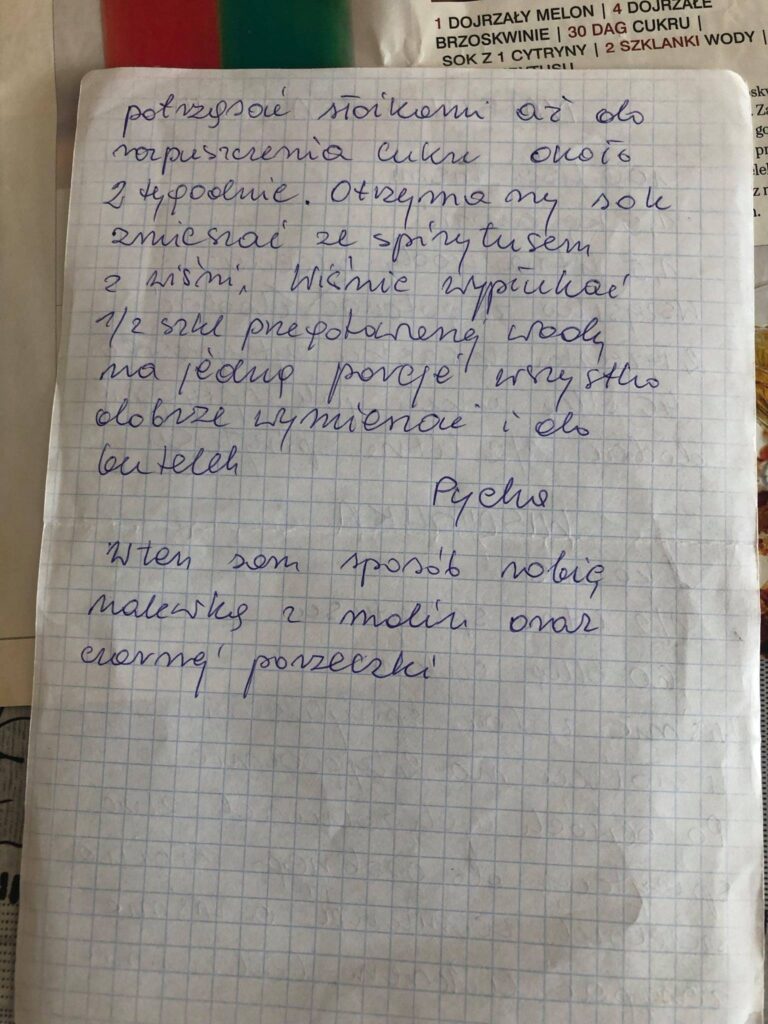 1 DOJRZAŁY MELON | 4 DOJRZAŁE
BRZOSKWINIE | 30 DAG CUKRU |
SOK Z 1 CYTRYNY | 2 SZKLANKI WODY |
potrząsać słoikami aż do
rozpuszczenia cukru około
2 tygodnie. Otrzymany sok
zmieszać ze spirytusem
z wiśni. Wiśnie wypłukać
1/2 szkl przegotowanej wody
na jedną porcję wszystko
dobrze wymieszać i do
butelek
Pycha
W ten sam sposób robię
nalewkę z malin oraz
czarnej porzeczki